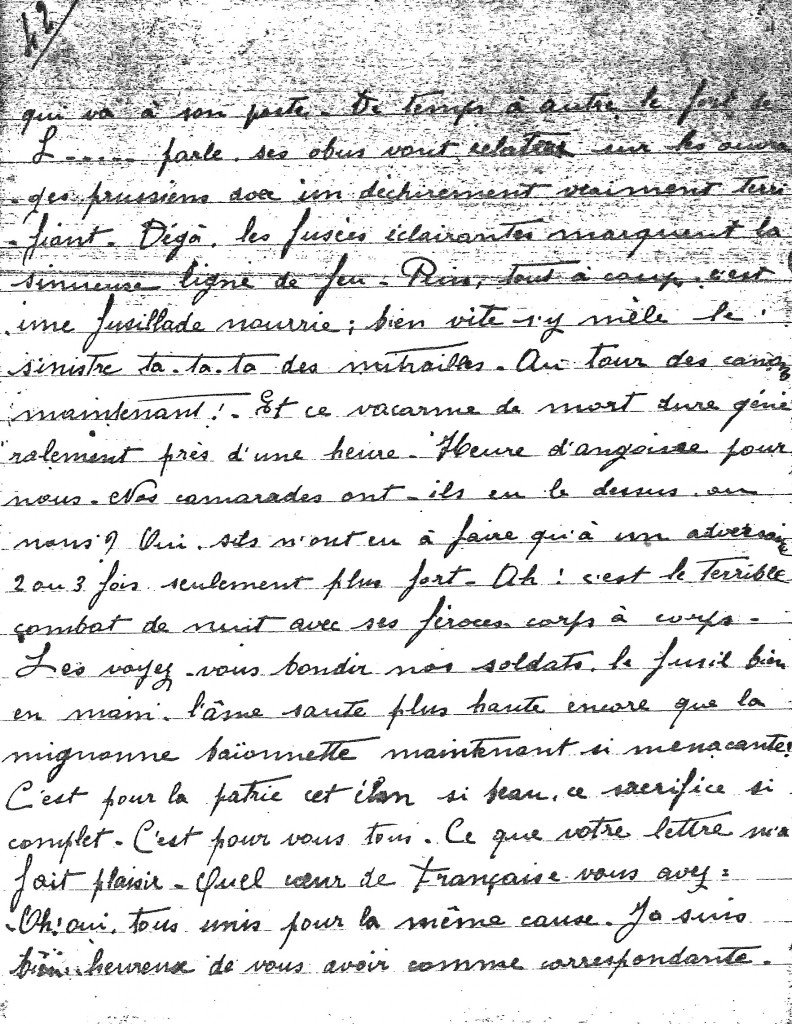 42
qui va à son poste. De temps à autre le fort de
L..... parle. ses obus vont éclater sur les ouvra
-ges prussiens avec un déchirement vraiment terri
-fiant. Déjà, les fusées éclairantes marquent la
sinueuse ligne de feu - Puis, tout à coup, c'est
une fusillade nourrie ; bien vite s'y mèle le
sinistre ta-ta-ta des mitrailles. Au tour des canons
maintenant! - Et ce vacarme de mort dure géné
ralement près d'une heure. Heure d'angoisse pour
nous. Nos camarades ont-ils eu le dessus, ou
nous? Oui, s'ils n'ont eu à faire qu'à un adversaire
2 ou 3 fois seulement plus fort. Ah! c'est le terrible
combat de nuit avec ses féroces corps à corps -
Les voyez-vous bondir nos soldats, le fusil bien
en main, l'âme saute plus haute encore que la
mignonne baïonnette maintenant si menaçante!
C'est pour la patrie cet élan si beau, ce sacrifice si
complet - C'est pour vous tous. Ce que votre lettre m'a
fait plaisir - Quel cœur de Française vous avez :
Oh! oui, tous unis pour la même cause. Je suis
bien heureux de vous avoir comme correspondante.